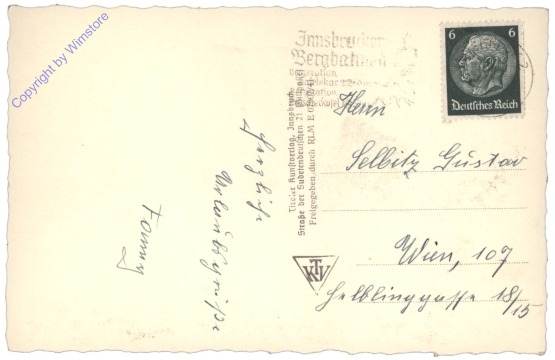 Copyright by Wimstore
Innsbrucker
Bergbahnen
6 6
Deutsches Reich
Herrn
Selbitz Gustav
Wien, 107
Helblinggasse 18/15
Tiroler Kunstverlag, Innsbruck
Straße der Sudetendeutschen 21
Freigegeben durch RLM
TKV
Herzliche
Urlaubsgrüße
Fanny